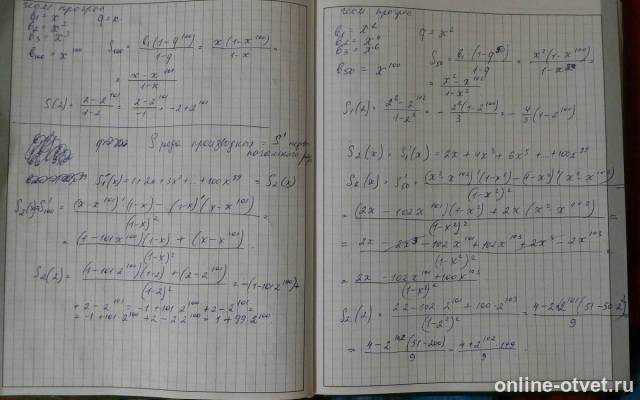 геом. прогрес
b₁ = x   q = x
b₂ = x²
b₃ = x³
b₁₀₀ = x¹⁰⁰   S₁₀₀ = b₁(1-q¹⁰⁰)/(1-q) = x(1-x¹⁰⁰)/(1-x) =
= (x-x¹⁰¹)/(1-x)
S(2) = (2-2¹⁰¹)/(1-2) = (2-2¹⁰¹)/(-1) = -2+2¹⁰¹
S ряда производных = S'
S₁'(x) = 1+2x+3x²+...+100x⁹⁹ = S₂(x)
S₂(x) = S'₁₀₀ = ((x-x¹⁰¹)'(1-x) - (1-x)'(x-x¹⁰¹))/(1-x)² =
= ((1-101x¹⁰⁰)(1-x) + (x-x¹⁰¹))/(1-x)²
S₂(2) = ((1-101·2¹⁰⁰)(1-2) + (2-2¹⁰¹))/(1-2)² = -(1-101·2¹⁰⁰)+
+2-2¹⁰¹ = -1+101·2¹⁰⁰+2-2¹⁰¹ =
= -1+101·2¹⁰⁰+2-2·2¹⁰⁰ = 1+99·2¹⁰⁰
геом. прогрес
b₁ = x²   q = x²
b₂ = x⁴
b₃ = x⁶
b₅₀ = x¹⁰⁰   S₅₀ = b₁(1-q⁵⁰)/(1-q) = x²(1-x¹⁰⁰)/(1-x²) =
= (x²-x¹⁰²)/(1-x²)
S₁(2) = (2²-2¹⁰²)/(1-2²) = -2²(1-2¹⁰⁰)/3 = -4/3(1-2¹⁰⁰)
S₂(x) = S₁'(x) = 2x+4x³+6x⁵+...+100x⁹⁹
S₂(x) = S'₅₀ = ((x²-x¹⁰²)'(1-x²) - (1-x²)'(x²-x¹⁰²))/(1-x²)² =
= ((2x-102x¹⁰¹)(1-x²) + 2x(x²-x¹⁰²))/(1-x²)² =
= (2x-2x³-102x¹⁰¹+102x¹⁰³+2x³-2x¹⁰³)/(1-x²)² =
= (2x-102x¹⁰¹+100x¹⁰³)/(1-x²)²
S₂(2) = (2·2-102·2¹⁰¹+100·2¹⁰³)/(1-2²)² =
= (4-2¹⁰²(51-200))/9 = (4+2¹⁰²·149)/9
online-otvet.ru